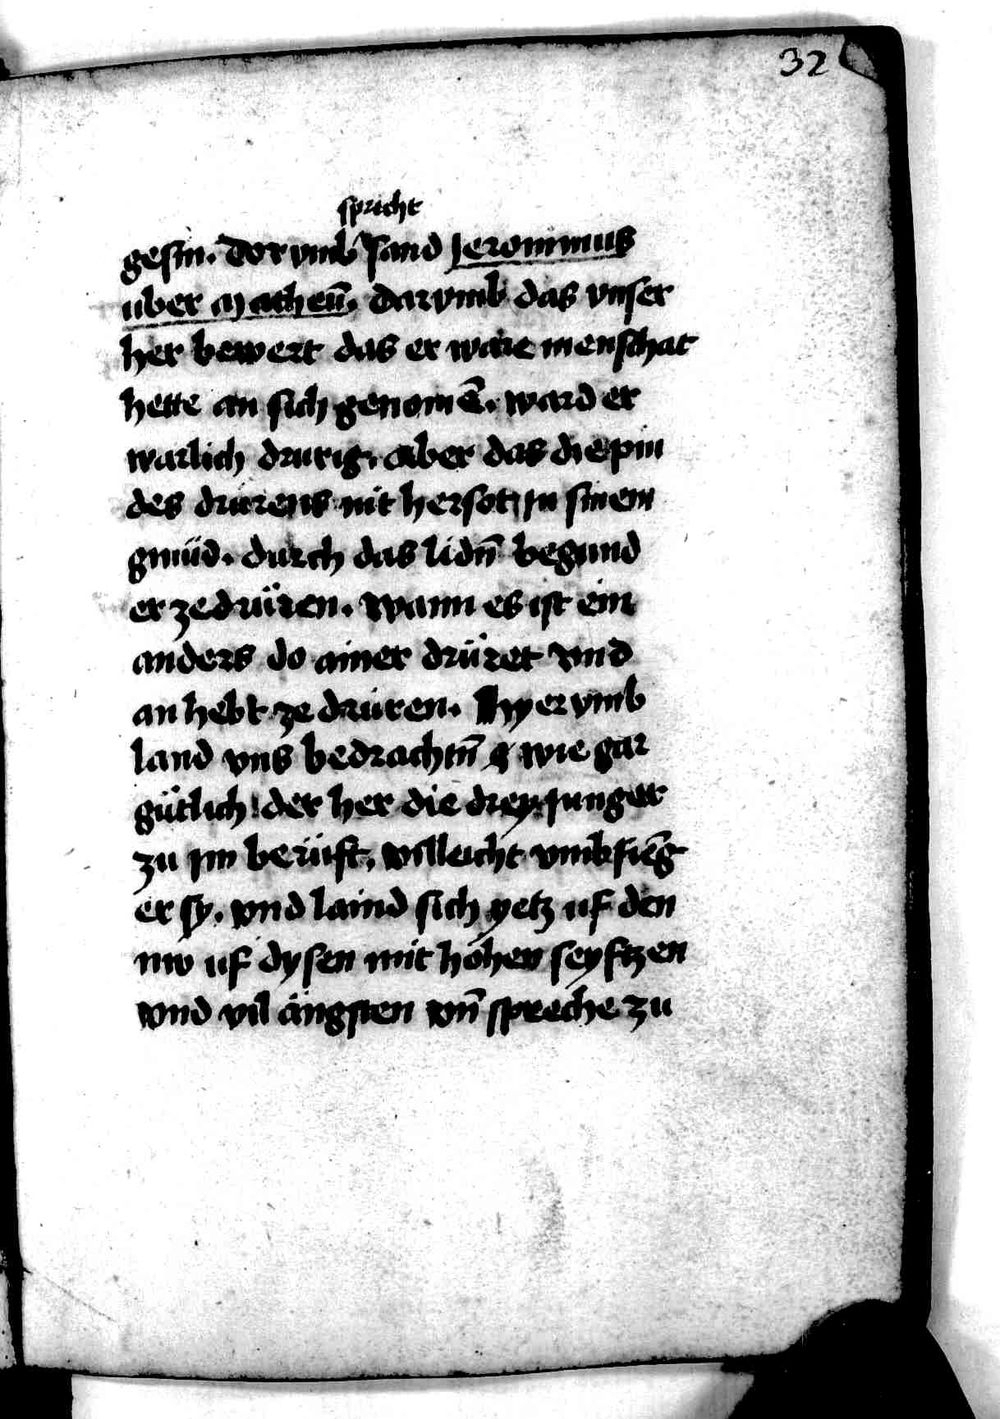 32
spricht
gesin. Dorvmb sand Jeronimus
über Matheū. Darvmb das vnser
her bewert das er ware menschat
hette an sich genomē. ward er
warlich drurig. aber das die pin
des drurens nit hersot jn sinem
gmüd. durch das lidn̄ begund
er ze drüren. Wann es ist ein
anders do ainer drüret vnd
an hebt ze drüren. Hyervmb
land vns bedrachtn̄ wie gar
gütlich der her die drey junger
zu jm berüft. villeicht vmbfieng
er sy. vnd laind sich yetz uf den
nw uf dysen mit hohen seyftzen
vnd vil ängsten vn̄ spreche zu